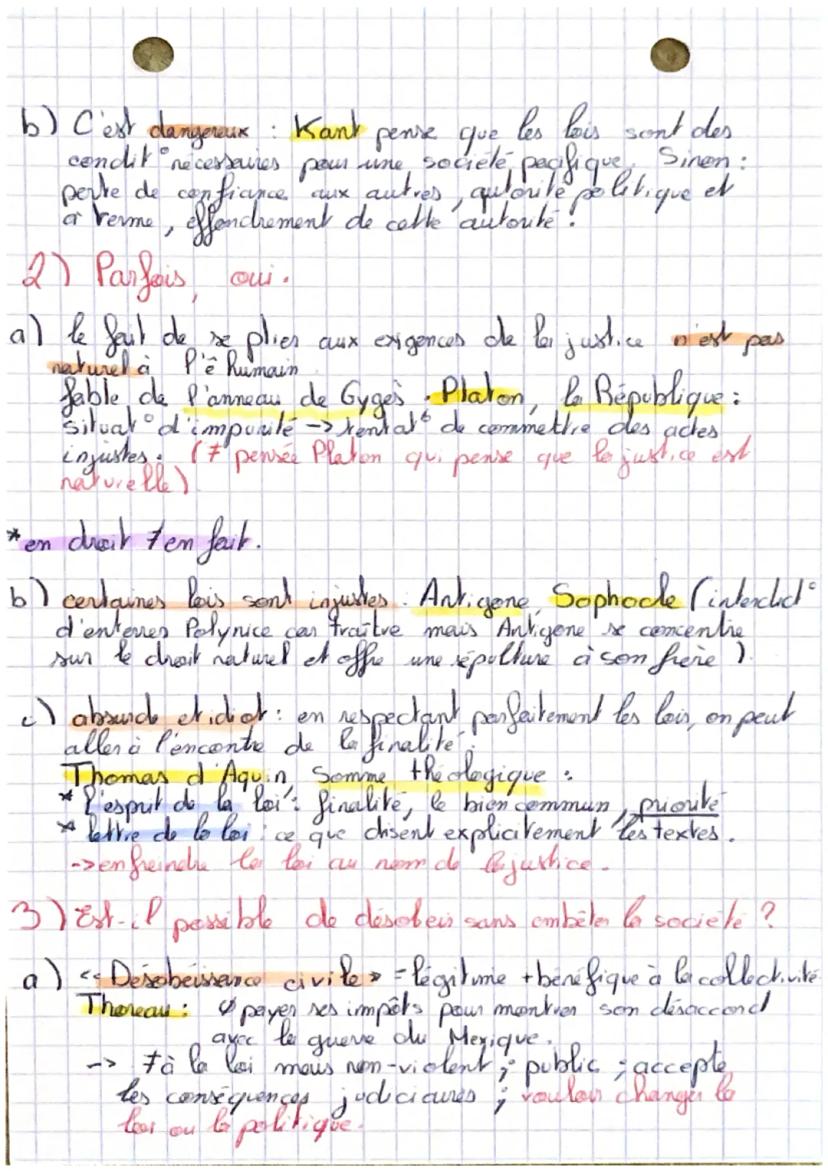 b) C'est dangereux : Kant pense que les lois sont des
condit° nécessaires pour une société pacifique. Sinon :
perte de confiance aux autres, autorité politique et
à terme, effondrement de cette autorité.
2) Parfois, oui.
a) le fait de se plier aux exigences de la justice n'est pas
naturel à l'ê humain
fable de l'anneau de Gygès. Platon, la République :
Situat° d'impunité -> tentat° de commettre des actes
injustes. (≠ pensée Platon qui pense que la justice est
naturelle)
*en droit ≠ en fait.
b) certaines lois sont injustes : Antigone, Sophocle (interdict°
d'enterrer Polynice car traître mais Antigone se concentre
sur le droit naturel et offre une sépulture à son frère).
c) absurde et idiot : en respectant parfaitement les lois, on peut
aller à l'encontre de la finalité.
Thomas d'Aquin, Somme théologique :
* l'esprit de la loi : finalité, le bien commun, priorité
* lettre de la loi : ce que disent explicitement les textes.
-> enfreindre la loi au nom de la justice.
3) Est-il possible de désobéir sans embêter la société ?
a) « Désobéissance civile » = légitime + bénéfique à la collectivité
Thoreau : payer ses impôts pour montrer son désaccord
avec la guerre du Mexique.
-> ≠ à la loi mais non-violent ; public ; accepte
les conséquences judiciaires ; vouloir changer la
loi ou la politique.